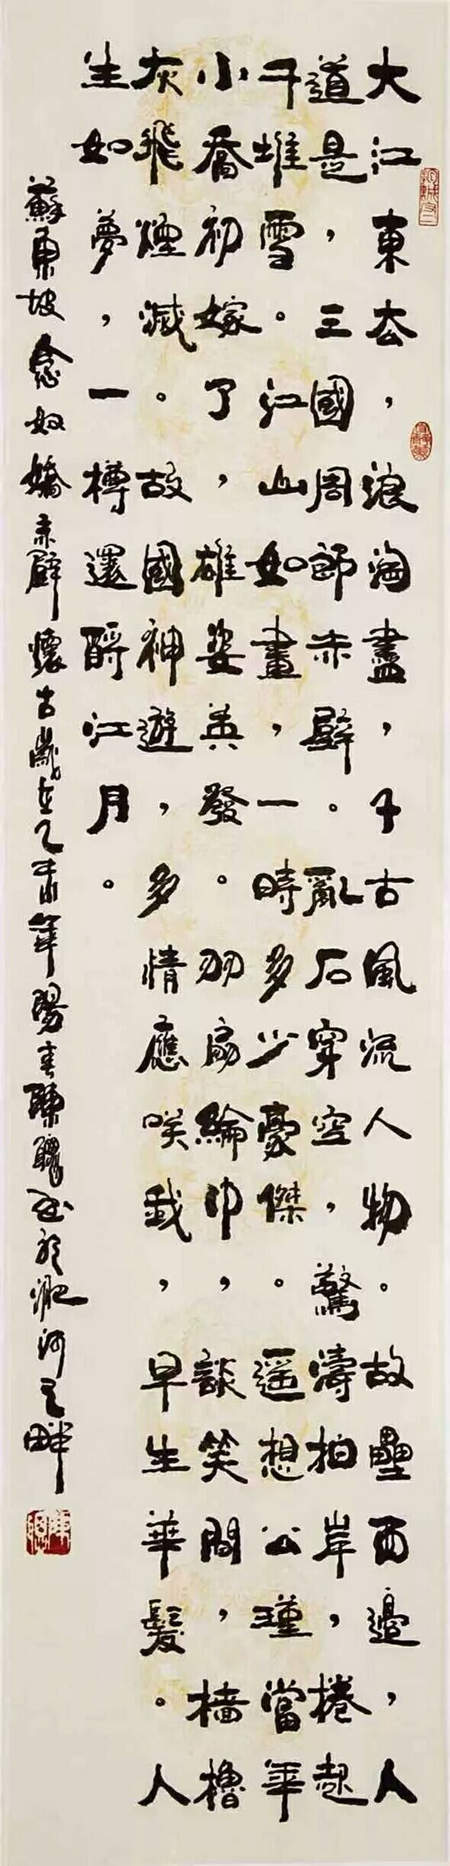 大江東去，浪淘盡，千古風流人物。故壘西邊，人
道是，三國周郎赤壁。亂石穿空，驚濤拍岸，捲起
千堆雪。江山如畫，一時多少豪傑。遥想公瑾當年
小喬初嫁了，雄姿英發。羽扇綸巾，談笑間，檣櫓
灰飛煙滅。故國神遊，多情應咲我，早生華髮。人
生如夢，一樽還酹江月。
蘇東坡念奴嬌赤壁懷古歲在乙未年陽春陳於淝河之畔